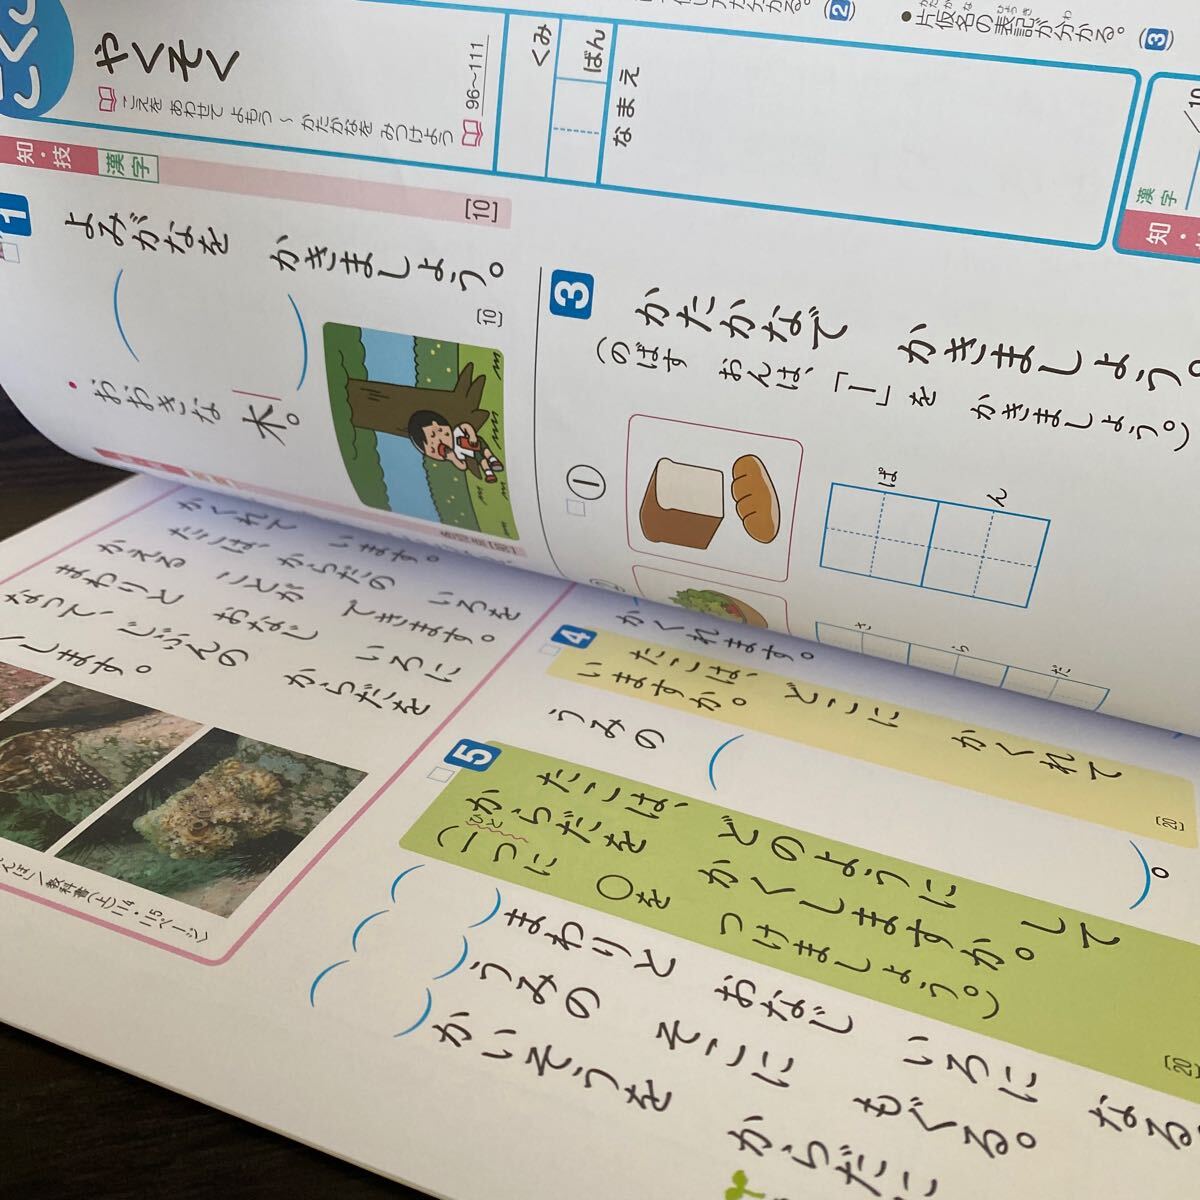 やくそく
こえを あわせて よもう ～ かたかなを みつけよう
96～111
くみ
ばん
なまえ
(2)
●片仮名の表記が分かる。
(3)
知・技
漢字
[10]
漢字
知・
1
よみがなを かきましょう。
[10]
・おおきな 木。
3
かたかなで かきましょう。
(のばす おんは、「ー」を かきましょう。)
①
ぱ
ん
さ
ら
だ
かくれて います。
たこは、からだの いろを
かえる ことが できます。
まわりと おなじ いろに
なって、じぶんの からだを
します。
教科書(上)114・115ページ
かくれます。
4
たこは、どこに かくれて
いますか。
[20]
うみの
。
5
たこは、どのように して
からだを かくしますか。
(一つに ○を つけましょう。)
ひと
[20]
まわりと おなじ いろに なる。
うみの そこに もぐる。
かいそうを からだに